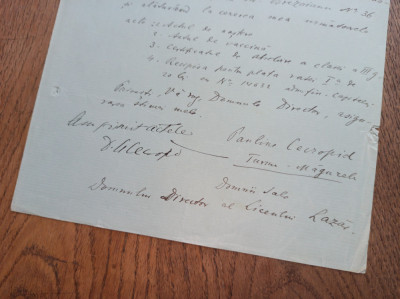 No 36
și alăturând la cererea mea următoarele
acte: 1. Actul de naștere
2. Actul de vaccină
3. Certificatul de absolvire a clasei a III g.
4. Recepisa pentru plata ratei I-a de
Primiți, Vă rog, Domnule Director, asigu-
rarea stimei mele.
Am primit actele
Paulina Cecropid
Turnu-Măgurele
Domniei Sale
Domnului Director al Liceului Lazăr.